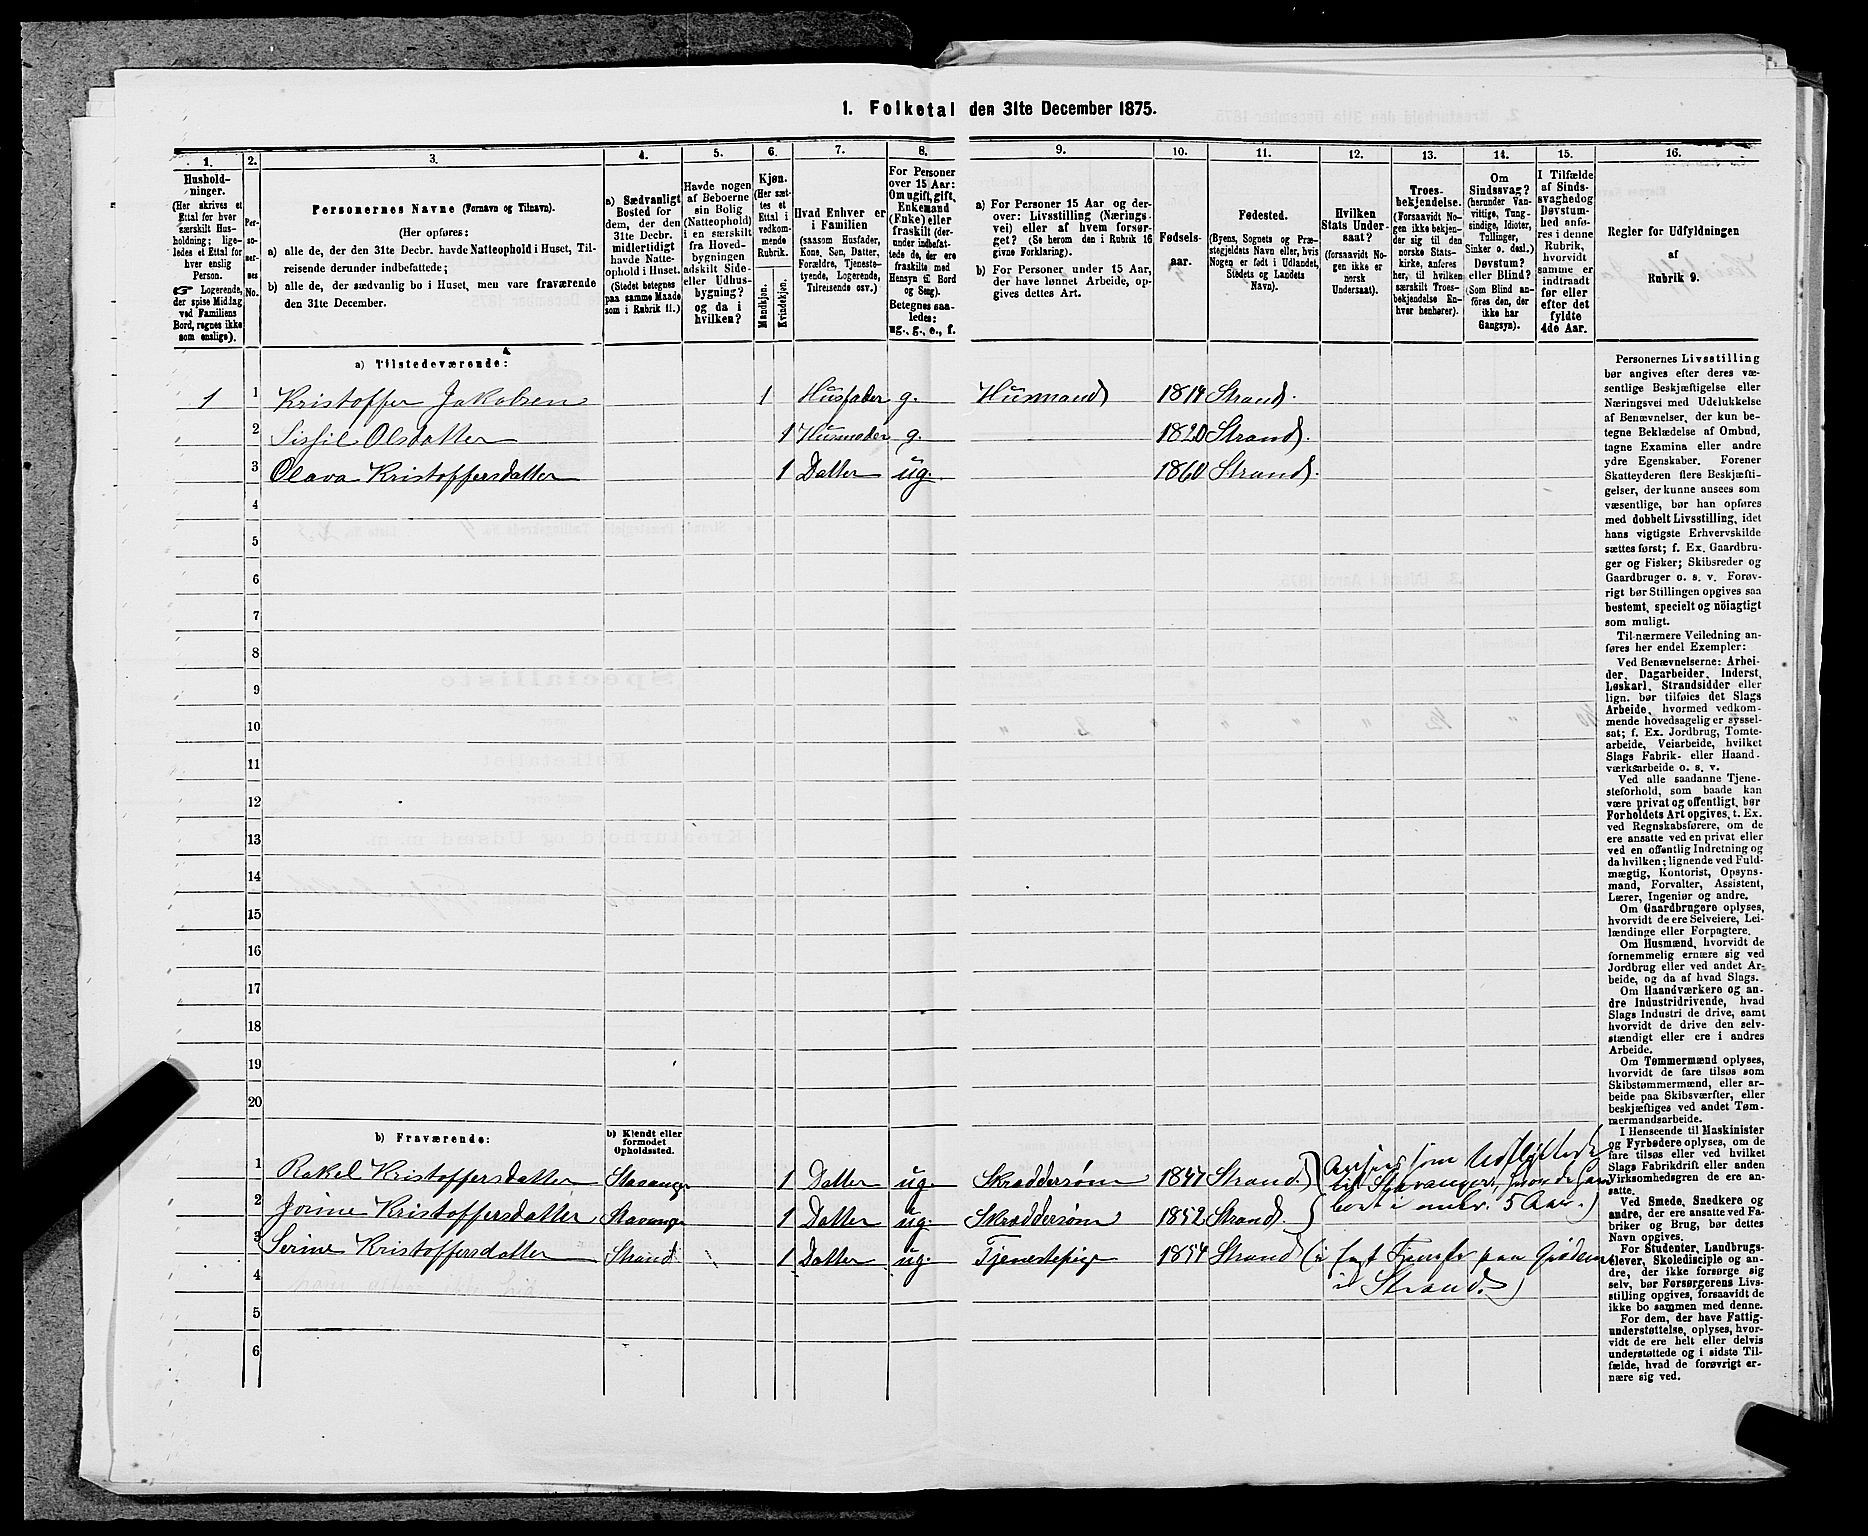 1. Folketal den 31te December 1875.
1. 2. 3. 4. 5. 6. 7. 8. 9. 10. 11. 12. 13. 14. 15. 16.
Hushold-
ninger.
(Her skrives et
Ettal for hver
særskilt Hus-
holdning; lige-
ledes et Ettal for
hver enslig
Person.
☞ Logerende,
der spise Middag
ved Familiens
Bord, regnes ikke
som enslige).
Per-
so-
ner-
nes
No.
Personernes Navne (Fornavn og Tilnavn).
(Her opføres:
a) alle de, der den 31te Decbr. havde Natteophold i Huset, Til-
reisende derunder indbefattede;
b) alle de, der sædvanlig bo i Huset, men vare fraværende
den 31te December.
a) Sædvanligt
Bosted for
dem, der den
31te Decbr.
midlertidigt
havde Natte-
ophold i Huset.
(Stedet betegnes
paa samme Maade
som i Rubrik 11.)
Havde nogen
af Beboerne
sin Bolig
(Natteophold)
i en særskilt
fra Hoved-
bygningen
adskilt Side-
eller Udhus-
bygning?
og da i
hvilken?
Kjøn.
(Her sæt-
tes et
Ettal i
vedkom-
mende
Rubrik.
Mandkjøn.
Kvindekjøn.
Hvad Enhver er
i Familien
(saasom Husfader,
Kone, Søn, Datter,
Forældre, Tjeneste-
tyende, Logerende,
Tilreisende osv.)
For Personer
over 15 Aar:
Om ugift, gift,
Enkemand
(Enke) eller
fraskilt (der-
under indbefat-
tede de, der ere
fraskilte med
Hensyn til Bord
og Seng).
Betegnes saa-
ledes:
ug., g., e., f.
a) For Personer 15 Aar og der-
over: Livsstilling (Nærings-
vei) eller af hvem forsør-
get? (Se herom den i Rubrik 16
givne Forklaring).
b) For Personer under 15 Aar,
der have lønnet Arbeide, op-
gives dettes Art.
Fødsels-
aar.
Fødested.
(Byens, Sognets og Præ-
stegjeldets Navn eller, hvis
Nogen er født i Udlandet,
Stedets og Landets
Navn).
Hvilken
Stats Under-
saat?
(forsaavidt No-
gen ikke er
norsk
Undersaat).
Troes-
bekjendelse.
(Forsaavidt No-
gen ikke bekjen-
der sig til den
norske Stats-
kirke, anføres
her, til hvilken
særskilt Troes-
bekjendelse En-
hver henhører).
Om
Sindssvag?
(herunder Van-
vittige, Tung-
sindige, Idioter,
Tullinger,
Sinker o. desl.).
Døvstum?
eller Blind?
(Som Blind an-
føres den, der
ikke har
Gangsyn).
I Tilfælde
af Sinds-
svaghed og
Døvstum-
hed anfø-
res i denne
Rubrik,
hvorvidt
samme er
indtraadt
før eller
efter det
fyldte
4de Aar.
Regler for Udfyldningen
af
Rubrik 9.
a) Tilstedeværende:
1 1 Kristoffer Jakobsen 1 Husfader g. Husmand 1814 Strand.
2 Sissil Olsdatter 1 Husmoder g. 1820 Strand.
3 Olava Kristoffersdatter 1 Datter ug. 1860 Strand.
4
5
6
7
8
9
10
11
12
13
14
15
16
17
18
19
20
b) Fraværende:
b) Kjendt eller
formodet
Opholdssted.
1 Rakel Kristoffersdatter Stavanger 1 Datter ug. Skræddersøm 1847 Strand. (Ansees som Udflyttede
til Stavanger, hvor de have
2 Jorine Kristoffersdatter Stavanger 1 Datter ug. Skræddersøm 1852 Strand. boet i 5 Aar.)
3 Serine Kristoffersdatter Strand 1 Datter ug. Tjenestepige 1854 Strand (i fast Tjeneste paa
4 i Strand.)
5
6
Personernes Livsstilling
bør angives efter deres væ-
sentlige Beskjæftigelse eller
Næringsvei med Udelukkelse
af Benævnelser, der kun be-
tegne Beklædelse af Ombud,
tagne Examina eller andre
ydre Egenskaber. Forener
Skatteyderen flere Beskjæfti-
gelser, der kunne ansees som
væsentlige, bør han opføres
med dobbelt Livsstilling, idet
hans vigtigste Erhvervskilde
sættes først; f. Ex. Gaardbru-
ger og Fisker; Skibsreder og
Gaardbruger o. s. v. Forøv-
rigt bør Stillingen opgives saa
bestemt, specielt og nöiagtigt
som muligt.
Til nærmere Veiledning an-
føres her endel Exempler:
Ved Benævnelserne: Arbei-
der, Dagarbeider, Inderst,
Løskarl, Strandsidder eller
lign. bør tilføies det Slags
Arbeide, hvormed vedkom-
mende hovedsagelig er syssel-
sat; f. Ex. Jordbrug, Tomte-
arbeide, Veiarbeide, hvilket
Slags Fabrik- eller Haand-
værksarbeide o. s. v.
Ved alle saadanne Tjene-
steforhold, som baade kan
være privat og offentligt, bør
Forholdets Art opgives, t. Ex.
ved Regnskabsførere, om de
ere ansatte ved en privat eller
ved en offentlig Indretning og
da hvilken; lignende ved Fuld-
mægtig, Kontorist, Opsyns-
mand, Forvalter, Assistent,
Lærer, Ingeniør og andre.
Om Gaardbrugere oplyses,
hvorvidt de ere Selveiere, Lei-
lændinge eller Forpagtere.
Om Husmænd, hvorvidt de
fornemmelig ernære sig ved
Jordbrug eller ved andet Ar-
beide, og da af hvad Slags.
Om Haandværkere og an-
dre Industridrivende, hvad
Slags Industri de drive, samt
hvorvidt de drive den selv-
stændigt eller ere i andres
Arbeide.
Om Tømmermænd oplyses,
hvorvidt de fare tilsøs som
Skibstømmermænd, eller ar-
beide paa Skibsværfter, eller
beskjæftiges ved andet Tøm-
mermandsarbeide.
I Henseende til Maskinister
og Fyrbødere oplyses, om de
fare tilsøs eller ved hvilket
Slags Fabrikdrift eller anden
Virksomhedsgren de ere an-
satte.
Ved Smede, Snedkere og
andre, der ere ansatte ved Fa-
briker og Brug, bør dettes
Navn opgives.
For Studenter, Landbrugs-
elever, Skoledisciple og an-
dre, der ikke forsørge sig
selv, bør Forsørgerens Livs-
stilling opgives, forsaavidt de
ikke bo sammen med denne.
For dem, der have Fattig-
understøttelse, oplyses, hvor-
vidt de ere helt eller delvis
understøttede og i sidste Til-
fælde, hvad de forøvrigt er-
nære sig ved.